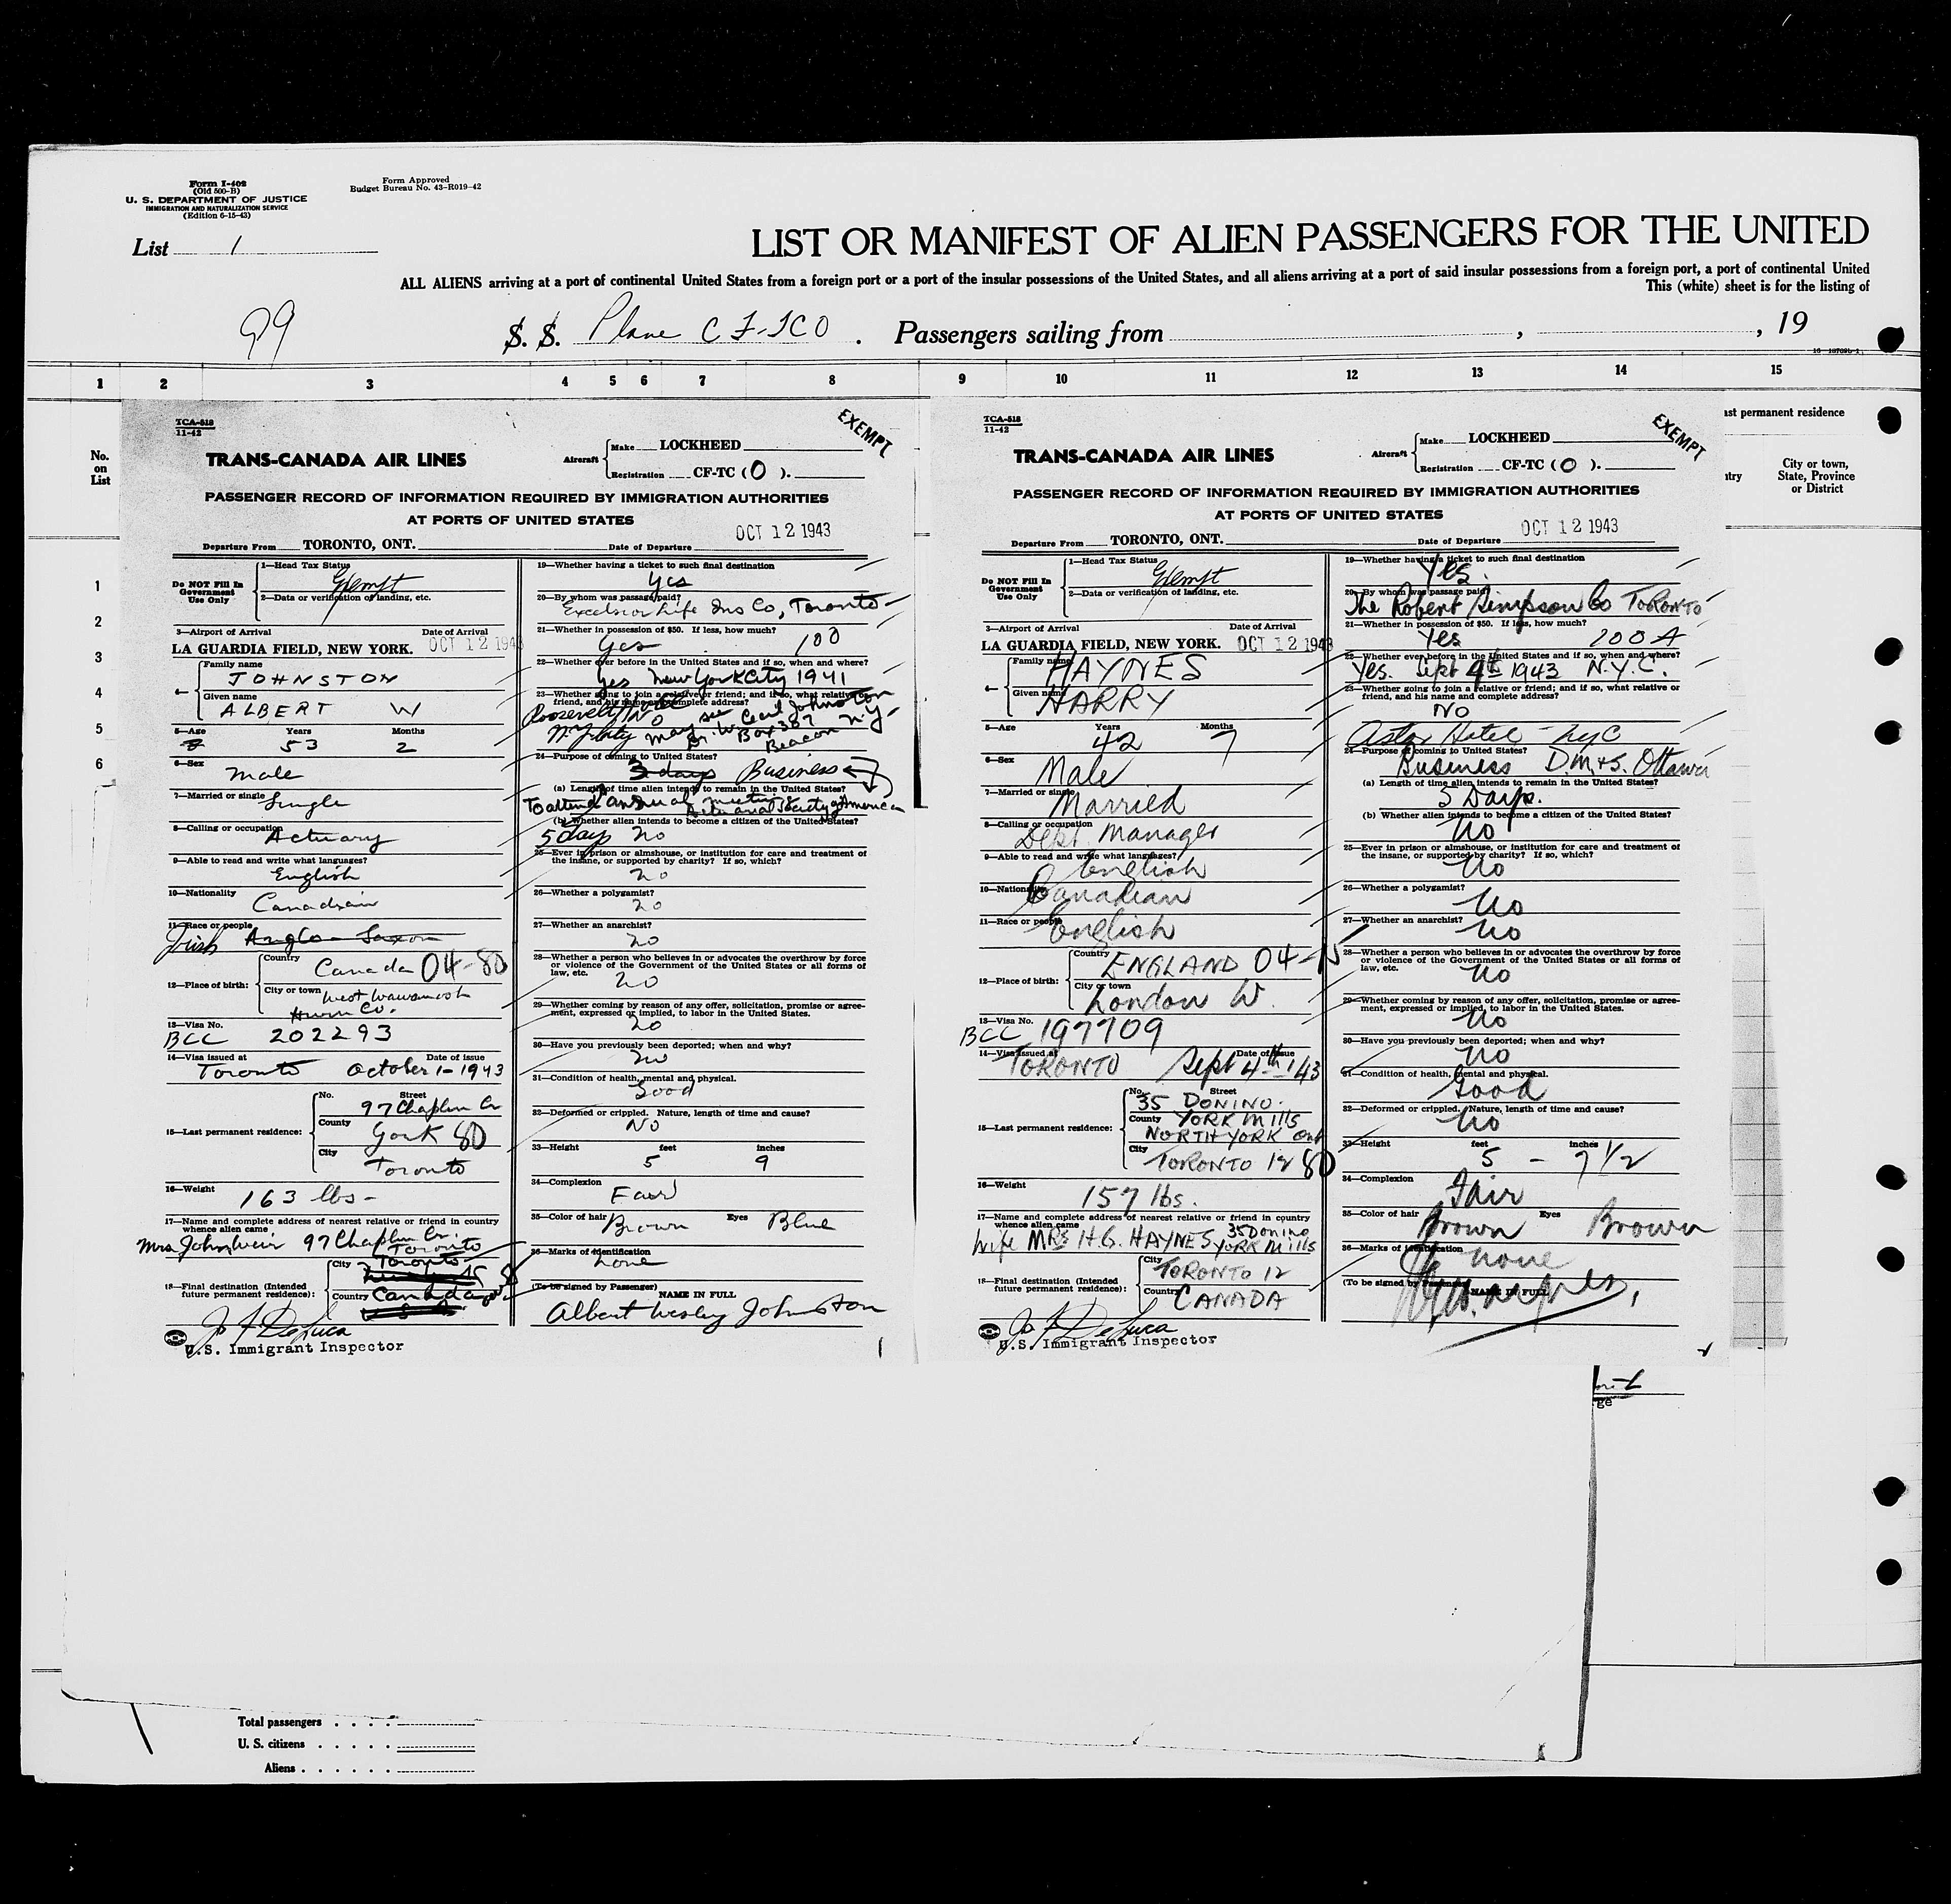 Form I-402
(Old 500-B)
U. S. DEPARTMENT OF JUSTICE
IMMIGRATION AND NATURALIZATION SERVICE
(Edition 6-15-43)
Form Approved
Budget Bureau No. 43-R019-42
List 1
LIST OR MANIFEST OF ALIEN PASSENGERS FOR THE UNITED
ALL ALIENS arriving at a port of continental United States from a foreign port or a part of the insular possessions of the United States, and all aliens arriving at a port of said insular possessions from a foreign port, a port of continental United
This (white) sheet is for the listing of
99
S. S. Plane CF-TCO . Passengers sailing from , , 19
1 2 3 4 5 6 7 8 9 10 11 12 13 14 15
No.
on
List
1
2
3
4
5
6
TCA-518
11-42
EXEMPT
TRANS-CANADA AIR LINES
Aircraft
Make LOCKHEED
Registration CF-TC (O).
PASSENGER RECORD OF INFORMATION REQUIRED BY IMMIGRATION AUTHORITIES
AT PORTS OF UNITED STATES
OCT 12 1943
Departure From TORONTO, ONT. Date of Departure
Do NOT Fill In
Government
Use Only
1—Head Tax Status
Exempt
2—Data or verification of landing, etc.
3—Airport of Arrival Date of Arrival
LA GUARDIA FIELD, NEW YORK. OCT 12 1943
4—
Family name
JOHNSTON
Given name
ALBERT W
5—Age Years Months
53 2
6—Sex
male
7—Married or single
Single
8—Calling or occupation
Actuary
9—Able to read and write what languages?
English
10—Nationality
Canadian
11—Race or people
Irish Anglo-Saxon
12—Place of birth:
Country
Canada 04-80
City or town
West Wawanosh
Huron Co.
13—Visa No.
BCC 202293
14—Visa issued at Date of issue
Toronto October 1-1943
15—Last permanent residence:
No. Street
97 Chaplin Cr
County
York 80
City
Toronto
16—Weight
163 lbs-
17—Name and complete address of nearest relative or friend in country
whence alien came
Mrs John Weir 97 Chaplin Cr.
Toronto
18—Final destination (Intended
future permanent residence):
City Toronto
Country Canada
U S A
U.S. Immigrant Inspector
19—Whether having a ticket to such final destination
yes
20—By whom was passage paid?
Excelsior Life Ins Co, Toronto
21—Whether in possession of $50. If less, how much?
yes 100
22—Whether ever before in the United States and if so, when and where?
yes New York City 1941
23—Whether going to join a relative or friend; and if so, what relative or
friend, and his name and complete address?
Roosevelt Hotel No may see Cecil Johnston
N.Y. City Box 387 N.Y.
Beacon
24—Purpose of coming to United States?
3 days Business
(a) Length of time alien intends to remain in the United States?
To attend annual meeting Actuarial Society of America
(b) Whether alien intends to become a citizen of the United States?
5 days no
25—Ever in prison or almshouse, or institution for care and treatment of
the insane, or supported by charity? If so, which?
no
26—Whether a polygamist?
no
27—Whether an anarchist?
no
28—Whether a person who believes in or advocates the overthrow by force
or violence of the Government of the United States or all forms of
law, etc.
no
29—Whether coming by reason of any offer, solicitation, promise or agree-
ment, expressed or implied, to labor in the United States.
no
30—Have you previously been deported; when and why?
no
31—Condition of health, mental and physical.
Good
32—Deformed or crippled. Nature, length of time and cause?
No
33—Height feet inches
5 9
34—Complexion
Fair
35—Color of hair Brown Eyes Blue
36—Marks of identification
none
(To be signed by Passenger) NAME IN FULL
Albert Wesley Johnston
1
TCA-518
11-42
EXEMPT
TRANS-CANADA AIR LINES
Aircraft
Make LOCKHEED
Registration CF-TC (O).
PASSENGER RECORD OF INFORMATION REQUIRED BY IMMIGRATION AUTHORITIES
AT PORTS OF UNITED STATES
OCT 12 1943
Departure From TORONTO, ONT. Date of Departure
Do NOT Fill In
Government
Use Only
1—Head Tax Status
Exempt
2—Data or verification of landing, etc.
3—Airport of Arrival Date of Arrival
LA GUARDIA FIELD, NEW YORK. OCT 12 1943
4—
Family name
HAYNES
Given name
HARRY
5—Age Years Months
42 7
6—Sex
Male
7—Married or single
Married
8—Calling or occupation
Dept. Manager
9—Able to read and write what languages?
English
10—Nationality
Canadian
11—Race or people
English
12—Place of birth:
Country
ENGLAND 04-15
City or town
London W.
13—Visa No.
BCC 197709
14—Visa issued at Date of issue
TORONTO Sept 4th 1943
15—Last permanent residence:
No. Street
35 DONINO.
County YORK Mills
NORTH YORK Ont
City
TORONTO 12 80
16—Weight
157 lbs.
17—Name and complete address of nearest relative or friend in country
whence alien came
Wife MRS H.G. HAYNES 35 Donino
YORK Mills
18—Final destination (Intended
future permanent residence):
City TORONTO 12
Country CANADA
U.S. Immigrant Inspector
19—Whether having a ticket to such final destination
Yes.
20—By whom was passage paid?
The Robert Simpson Co TORONTO
21—Whether in possession of $50. If less, how much?
Yes 200 A
22—Whether ever before in the United States and if so, when and where?
Yes. Sept 4th 1943 N.Y.C.
23—Whether going to join a relative or friend; and if so, what relative or
friend, and his name and complete address?
NO
Astor Hotel - NYC
24—Purpose of coming to United States?
Business D.M.&S. Ottawa
(a) Length of time alien intends to remain in the United States?
5 Days.
(b) Whether alien intends to become a citizen of the United States?
No
25—Ever in prison or almshouse, or institution for care and treatment of
the insane, or supported by charity? If so, which?
No
26—Whether a polygamist?
No
27—Whether an anarchist?
No
28—Whether a person who believes in or advocates the overthrow by force
or violence of the Government of the United States or all forms of
law, etc.
No
29—Whether coming by reason of any offer, solicitation, promise or agree-
ment, expressed or implied, to labor in the United States.
No
30—Have you previously been deported; when and why?
No
31—Condition of health, mental and physical.
Good
32—Deformed or crippled. Nature, length of time and cause?
No
33—Height feet inches
5 - 7 1/2
34—Complexion
Fair
35—Color of hair Brown Eyes Brown
36—Marks of identification
none
(To be signed by Passenger) NAME IN FULL
2
ast permanent residence
ntry
City or town,
State, Province
or District
ge
Total passengers
U. S. citizens
Aliens